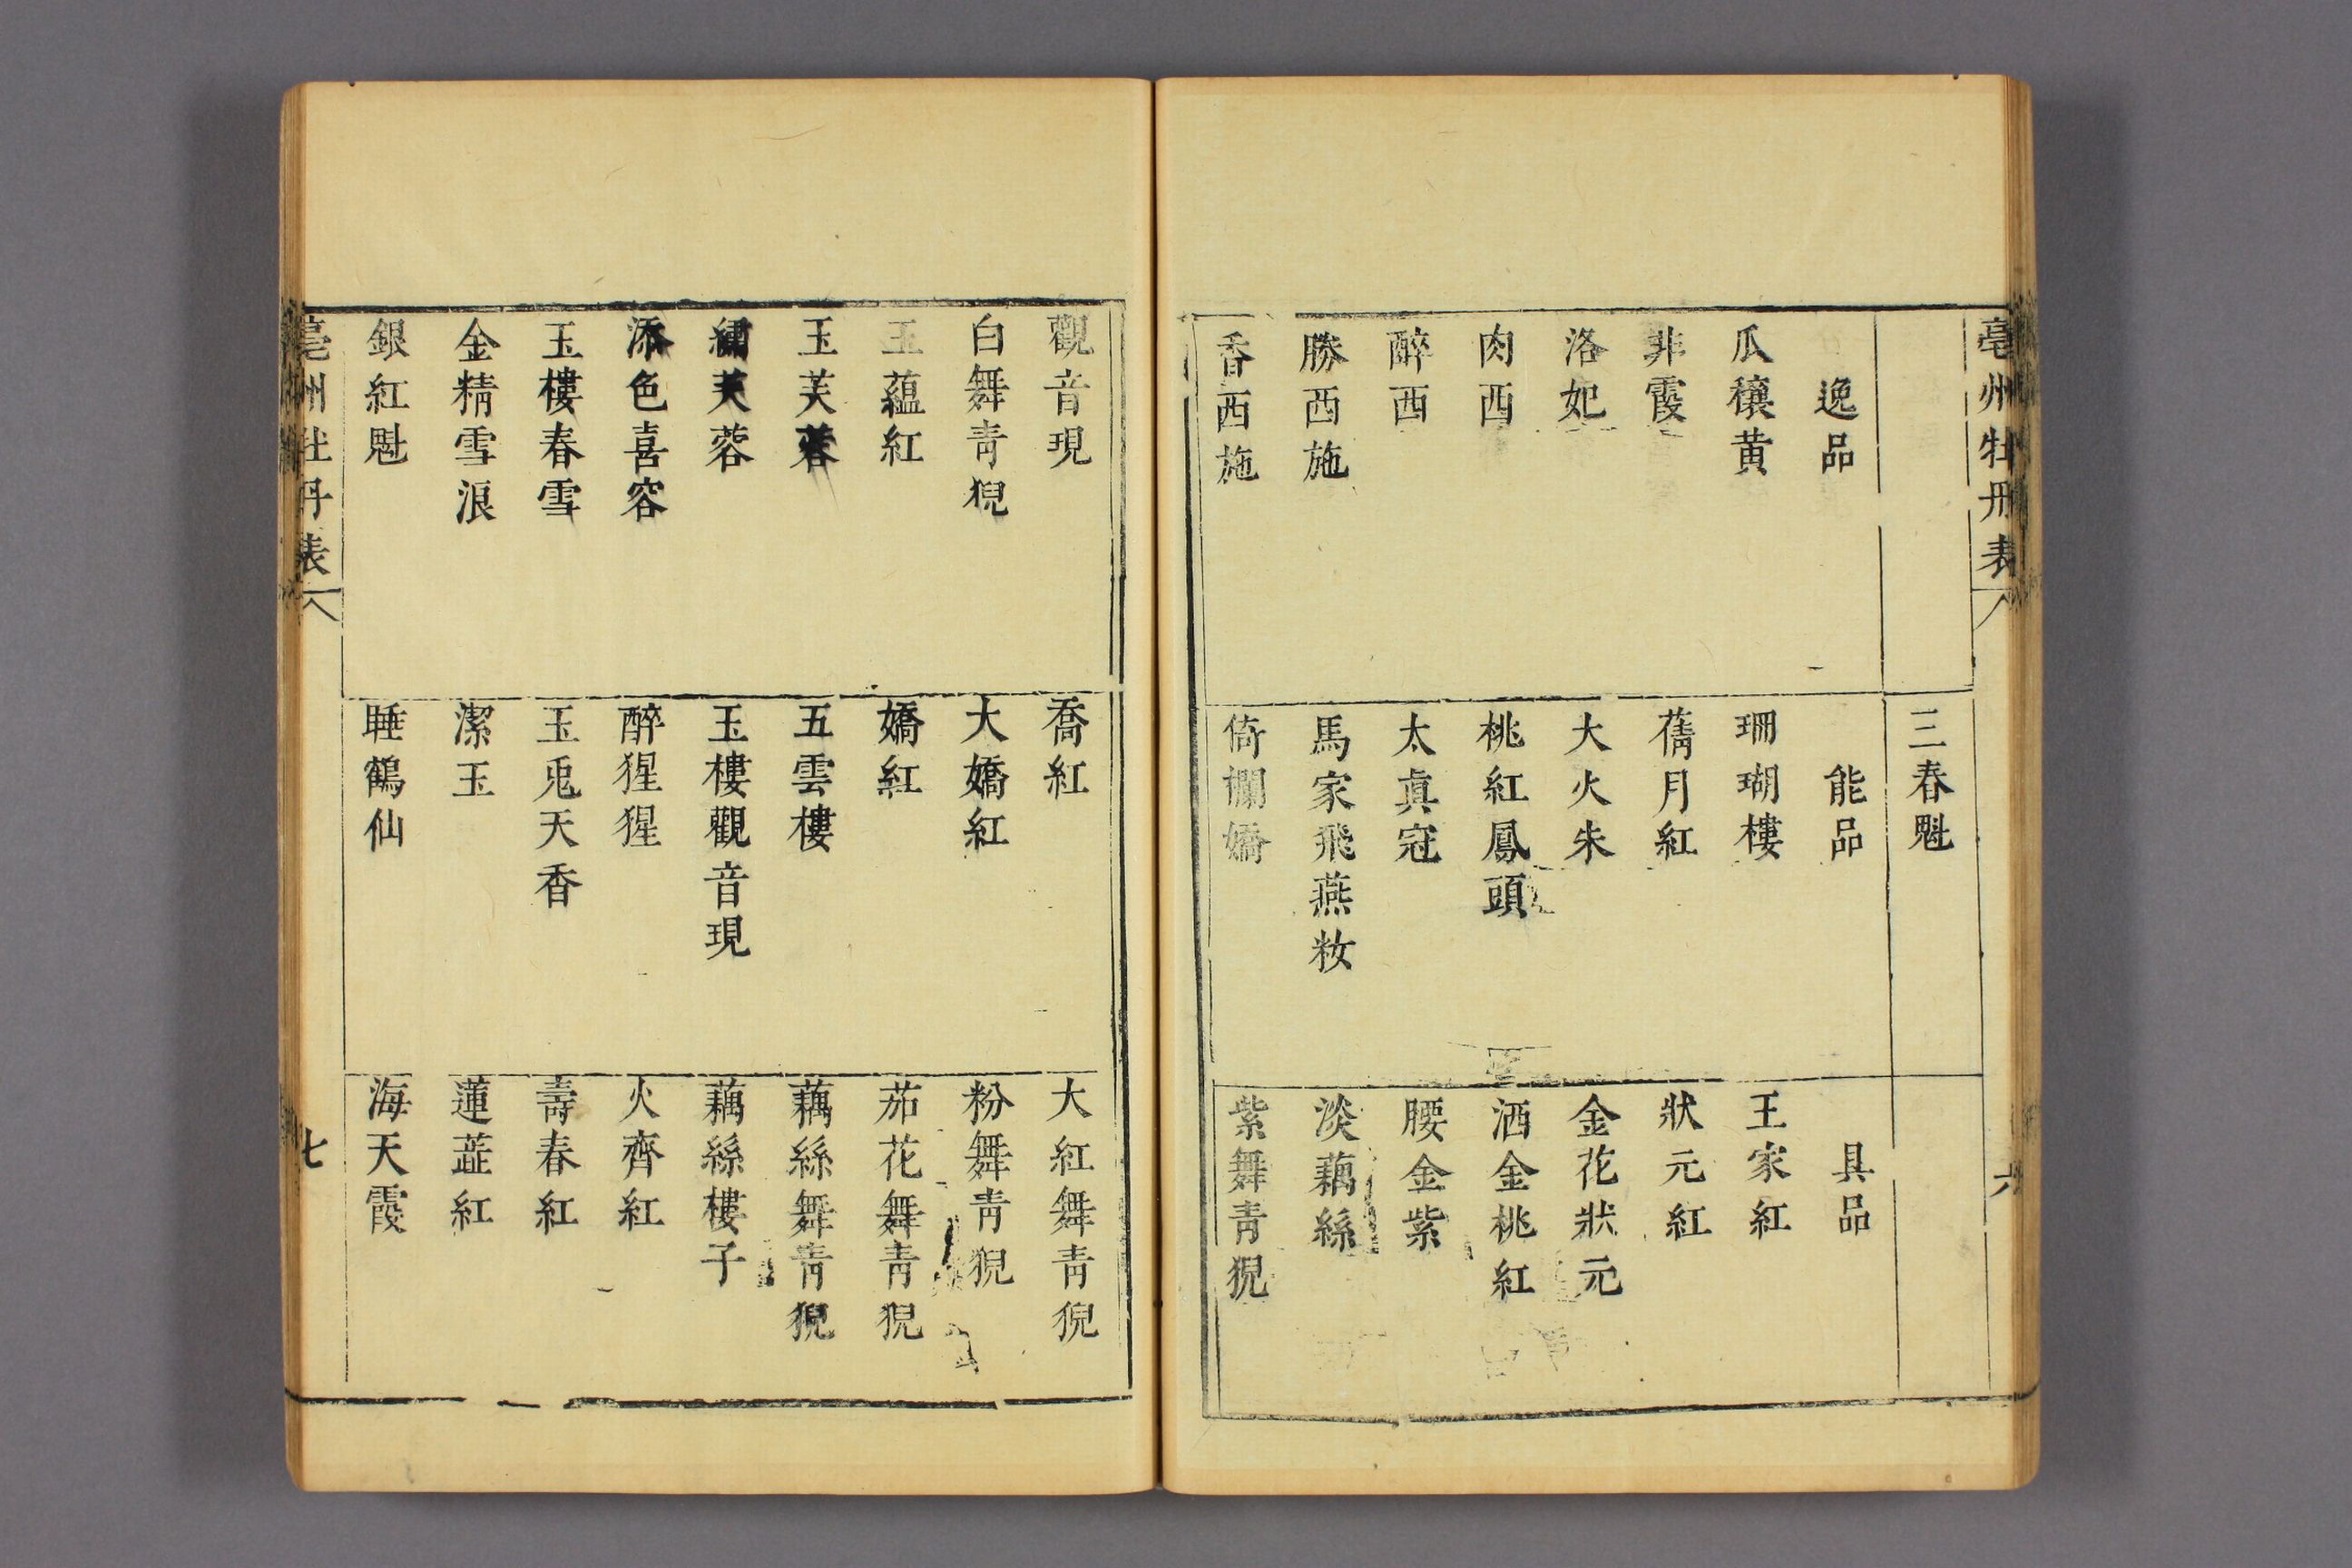 亳州牡丹表
六
三春魁
逸品
能品
具品
瓜穰黄
珊瑚樓
王家紅
非霞
蒨月紅
狀元紅
洛妃
大火朱
金花狀元
肉西
桃紅鳳頭
洒金桃紅
醉西
太眞冠
腰金紫
勝西施
馬家飛燕妝
淡藕絲
香西施
倚欄嬌
紫舞青猊
觀音現
喬紅
大紅舞青猊
白舞青猊
大嬌紅
粉舞青猊
玉蘊紅
嬌紅
茄花舞青猊
玉芙蓉
五雲樓
藕絲舞青猊
繡芙蓉
玉樓觀音現
藕絲樓子
添色喜容
醉猩猩
火齊紅
玉樓春雪
玉兎天香
壽春紅
金精雪浪
潔玉
蓮蘂紅
銀紅魁
睡鶴仙
海天霞
亳州牡丹表
七